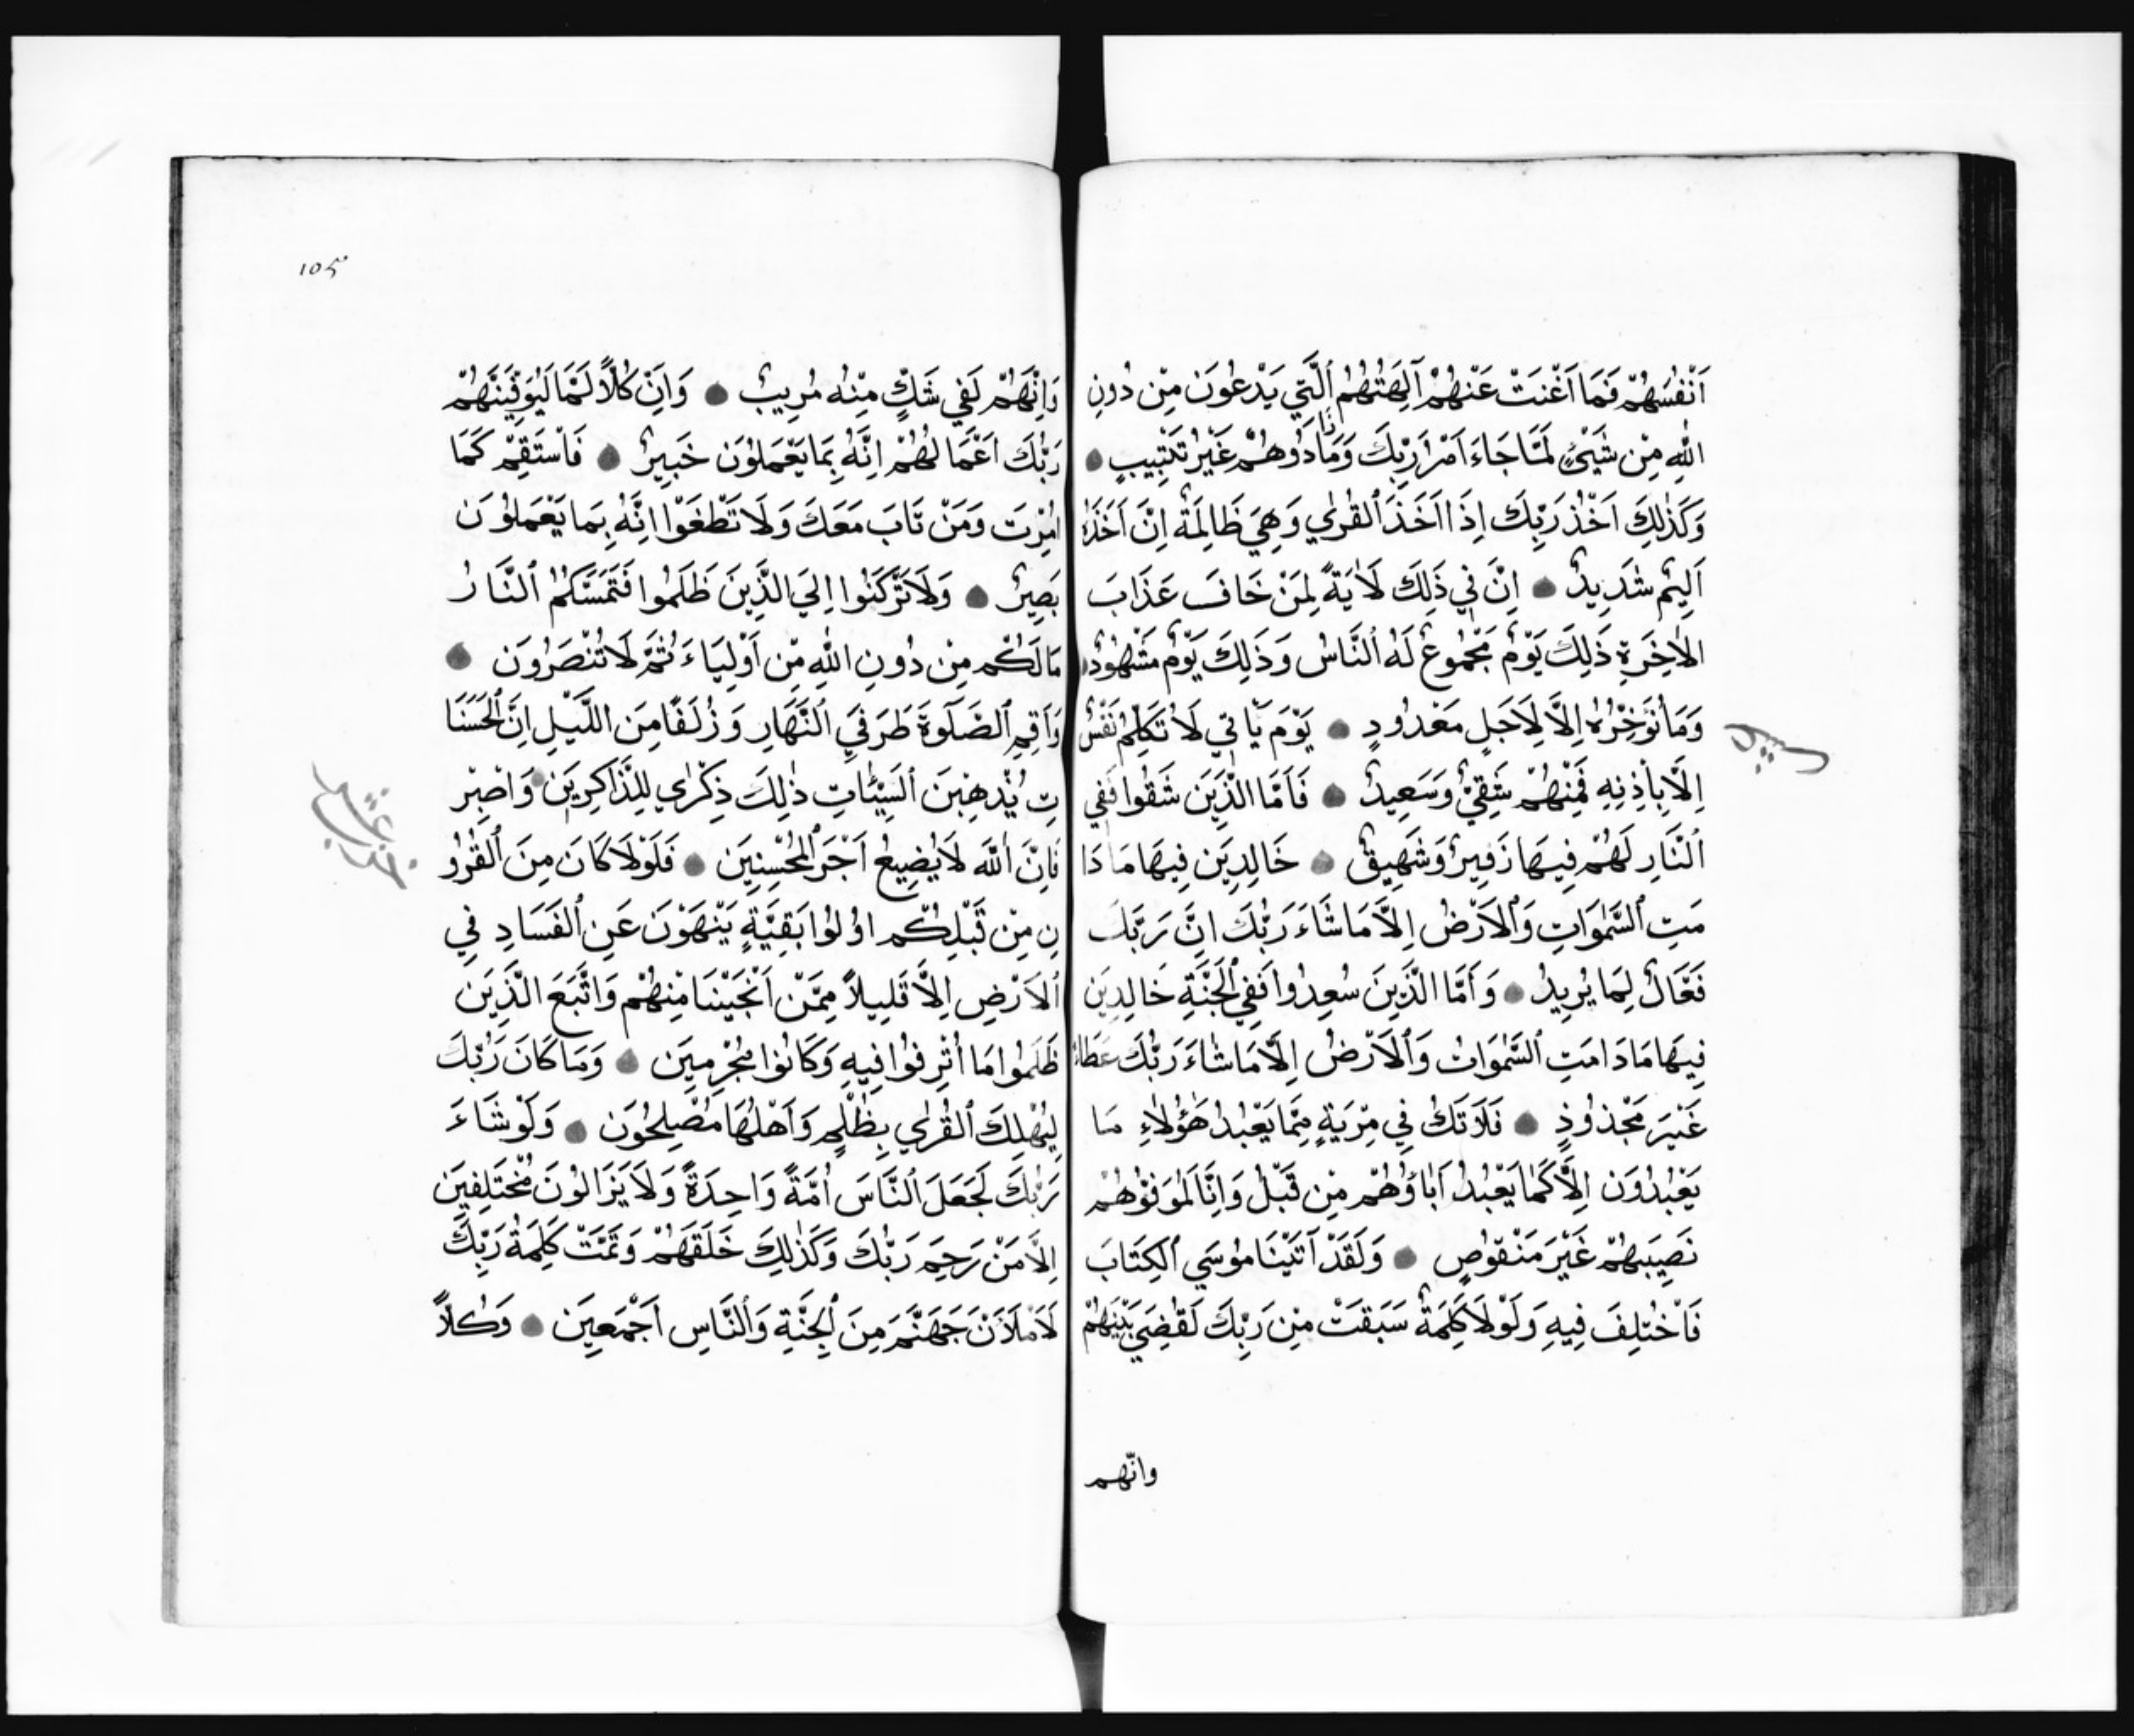 اَنْفُسَهُمْ فَمَا اَغْنَتْ عَنْهُمْ آلِهَتُهُمُ ٱلَّتِي يَدْعُونَ مِنْ دُونِ
اللّٰهِ مِنْ شَيْئٍ لَمَّا جَاءَ اَمْرُ رَبِّكَ وَمَا زَادُوهُمْ غَيْرَ تَتْبِيبٍ
وَكَذٰلِكَ اَخْذُ رَبِّكَ اِذَا اَخَذَ ٱلقُرٰي وَهِيَ ظَالِمَةٌ اِنَّ اَخْذَهُ
اَلِيمٌ شَدِيدٌ اِنَّ فِي ذَلِكَ لَاٰيَةً لِمَنْ خَافَ عَذَابَ
الاٰخِرَةِ ذَلِكَ يَوْمٌ مَجْمُوعٌ لَهُ ٱلنَّاسُ وَذَلِكَ يَوْمٌ مَشْهُودٌ
وَمَا نُؤَخِّرُهُ اِلَّا لِاَجَلٍ مَعْدُودٍ يَوْمَ يَاْتِي لَا تُكَلِّمُ نَفْسٌ
اِلَّا بِاِذْنِهِ فَمِنْهُمْ شَقِيٌّ وَسَعِيدٌ فَاَمَّا الَّذِينَ شَقُوا فَفِي
ٱلنَّارِ لَهُمْ فِيهَا زَفِيرٌ وَشَهِيقٌ خَالِدِينَ فِيهَا مَا دَا
مَتِ ٱلسَّمٰوَاتِ وَٱلاَرْضُ اِلَّا مَا شَاءَ رَبُّكَ اِنَّ رَبَّكَ
فَعَّالٌ لِمَا يُرِيدُ وَاَمَّا الَّذِينَ سُعِدُوا فَفِي ٱلجَنَّةِ خَالِدِينَ
فِيهَا مَا دَامَتِ ٱلسَّمٰوَاتُ وَٱلاَرْضُ اِلَّا مَا شَاءَ رَبُّكَ عَطَاءً
غَيْرَ مَجْذُوذٍ فَلَا تَكُ فِي مِرْيَةٍ مِمَّا يَعْبُدُ هٰؤُلَاءِ مَا
يَعْبُدُونَ اِلَّا كَمَا يَعْبُدُ اٰبَاؤُهُمْ مِنْ قَبْلُ وَاِنَّا لَمُوَفُّوهُمْ
نَصِيبَهُمْ غَيْرَ مَنْقُوصٍ وَلَقَدْ آتَيْنَا مُوسَي ٱلكِتَابَ
فَاخْتُلِفَ فِيهِ وَلَوْلَا كَلِمَةٌ سَبَقَتْ مِنْ رَبِّكَ لَقُضِيَ بَيْنَهُمْ
وانّهم
١٠٥
وَاِنَّهُمْ لَفِي شَكٍّ مِنْهُ مُرِيبٌ وَاِنَّ كُلّاً لَمَّا لَيُوَفِّيَنَّهُمْ
رَبُّكَ اَعْمَالَهُمْ اِنَّهُ بِمَا يَعْمَلُونَ خَبِيرٌ فَاسْتَقِمْ كَمَا
اُمِرْتَ وَمَنْ تَابَ مَعَكَ وَلَا تَطْغَوْا اِنَّهُ بِمَا يَعْمَلُونَ
بَصِيرٌ وَلَا تَرْكَنُوا اِلَيَ الَّذِينَ ظَلَمُوا فَتَمَسَّكُمُ ٱلنَّارُ
مَا لَكُمْ مِنْ دُونِ اللّٰهِ مِنْ اَوْلِيَاءَ ثُمَّ لَا تُنْصَرُونَ
وَاَقِمِ ٱلصَّلَوٰةَ طَرَفَيِ ٱلنَّهَارِ وَزُلَفًا مِنَ اللَّيْلِ اِنَّ ٱلحَسَنَا
تِ يُذْهِبْنَ ٱلسَّيِّئَاتِ ذٰلِكَ ذِكْرٰي لِلذَّاكِرِينَ وَاصْبِرْ
فَاِنَّ ٱللّٰهَ لَا يُضِيعُ اَجْرَ ٱلمُحْسِنِينَ فَلَوْلَا كَانَ مِنَ ٱلقُرُو
نِ مِنْ قَبْلِكُمْ اُولُوا بَقِيَّةٍ يَنْهَوْنَ عَنِ ٱلفَسَادِ فِي
ٱلاَرْضِ اِلَّا قَلِيلاً مِمَّنْ اَنْجَيْنَا مِنْهُمْ وَاتَّبَعَ الَّذِينَ
ظَلَمُوا مَا اُتْرِفُوا فِيهِ وَكَانُوا مُجْرِمِينَ وَمَا كَانَ رَبُّكَ
لِيُهْلِكَ ٱلقُرٰي بِظُلْمٍ وَاَهْلُهَا مُصْلِحُونَ وَلَوْ شَاءَ
رَبُّكَ لَجَعَلَ ٱلنَّاسَ اُمَّةً وَاحِدَةً وَلَا يَزَالُونَ مُخْتَلِفِينَ
اِلَّا مَنْ رَحِمَ رَبُّكَ وَكَذٰلِكَ خَلَقَهُمْ وَتَمَّتْ كَلِمَةُ رَبِّكَ
لَاَمْلَاَنَّ جَهَنَّمَ مِنَ ٱلجِنَّةِ وَٱلنَّاسِ اَجْمَعِينَ وَكُلاًّ